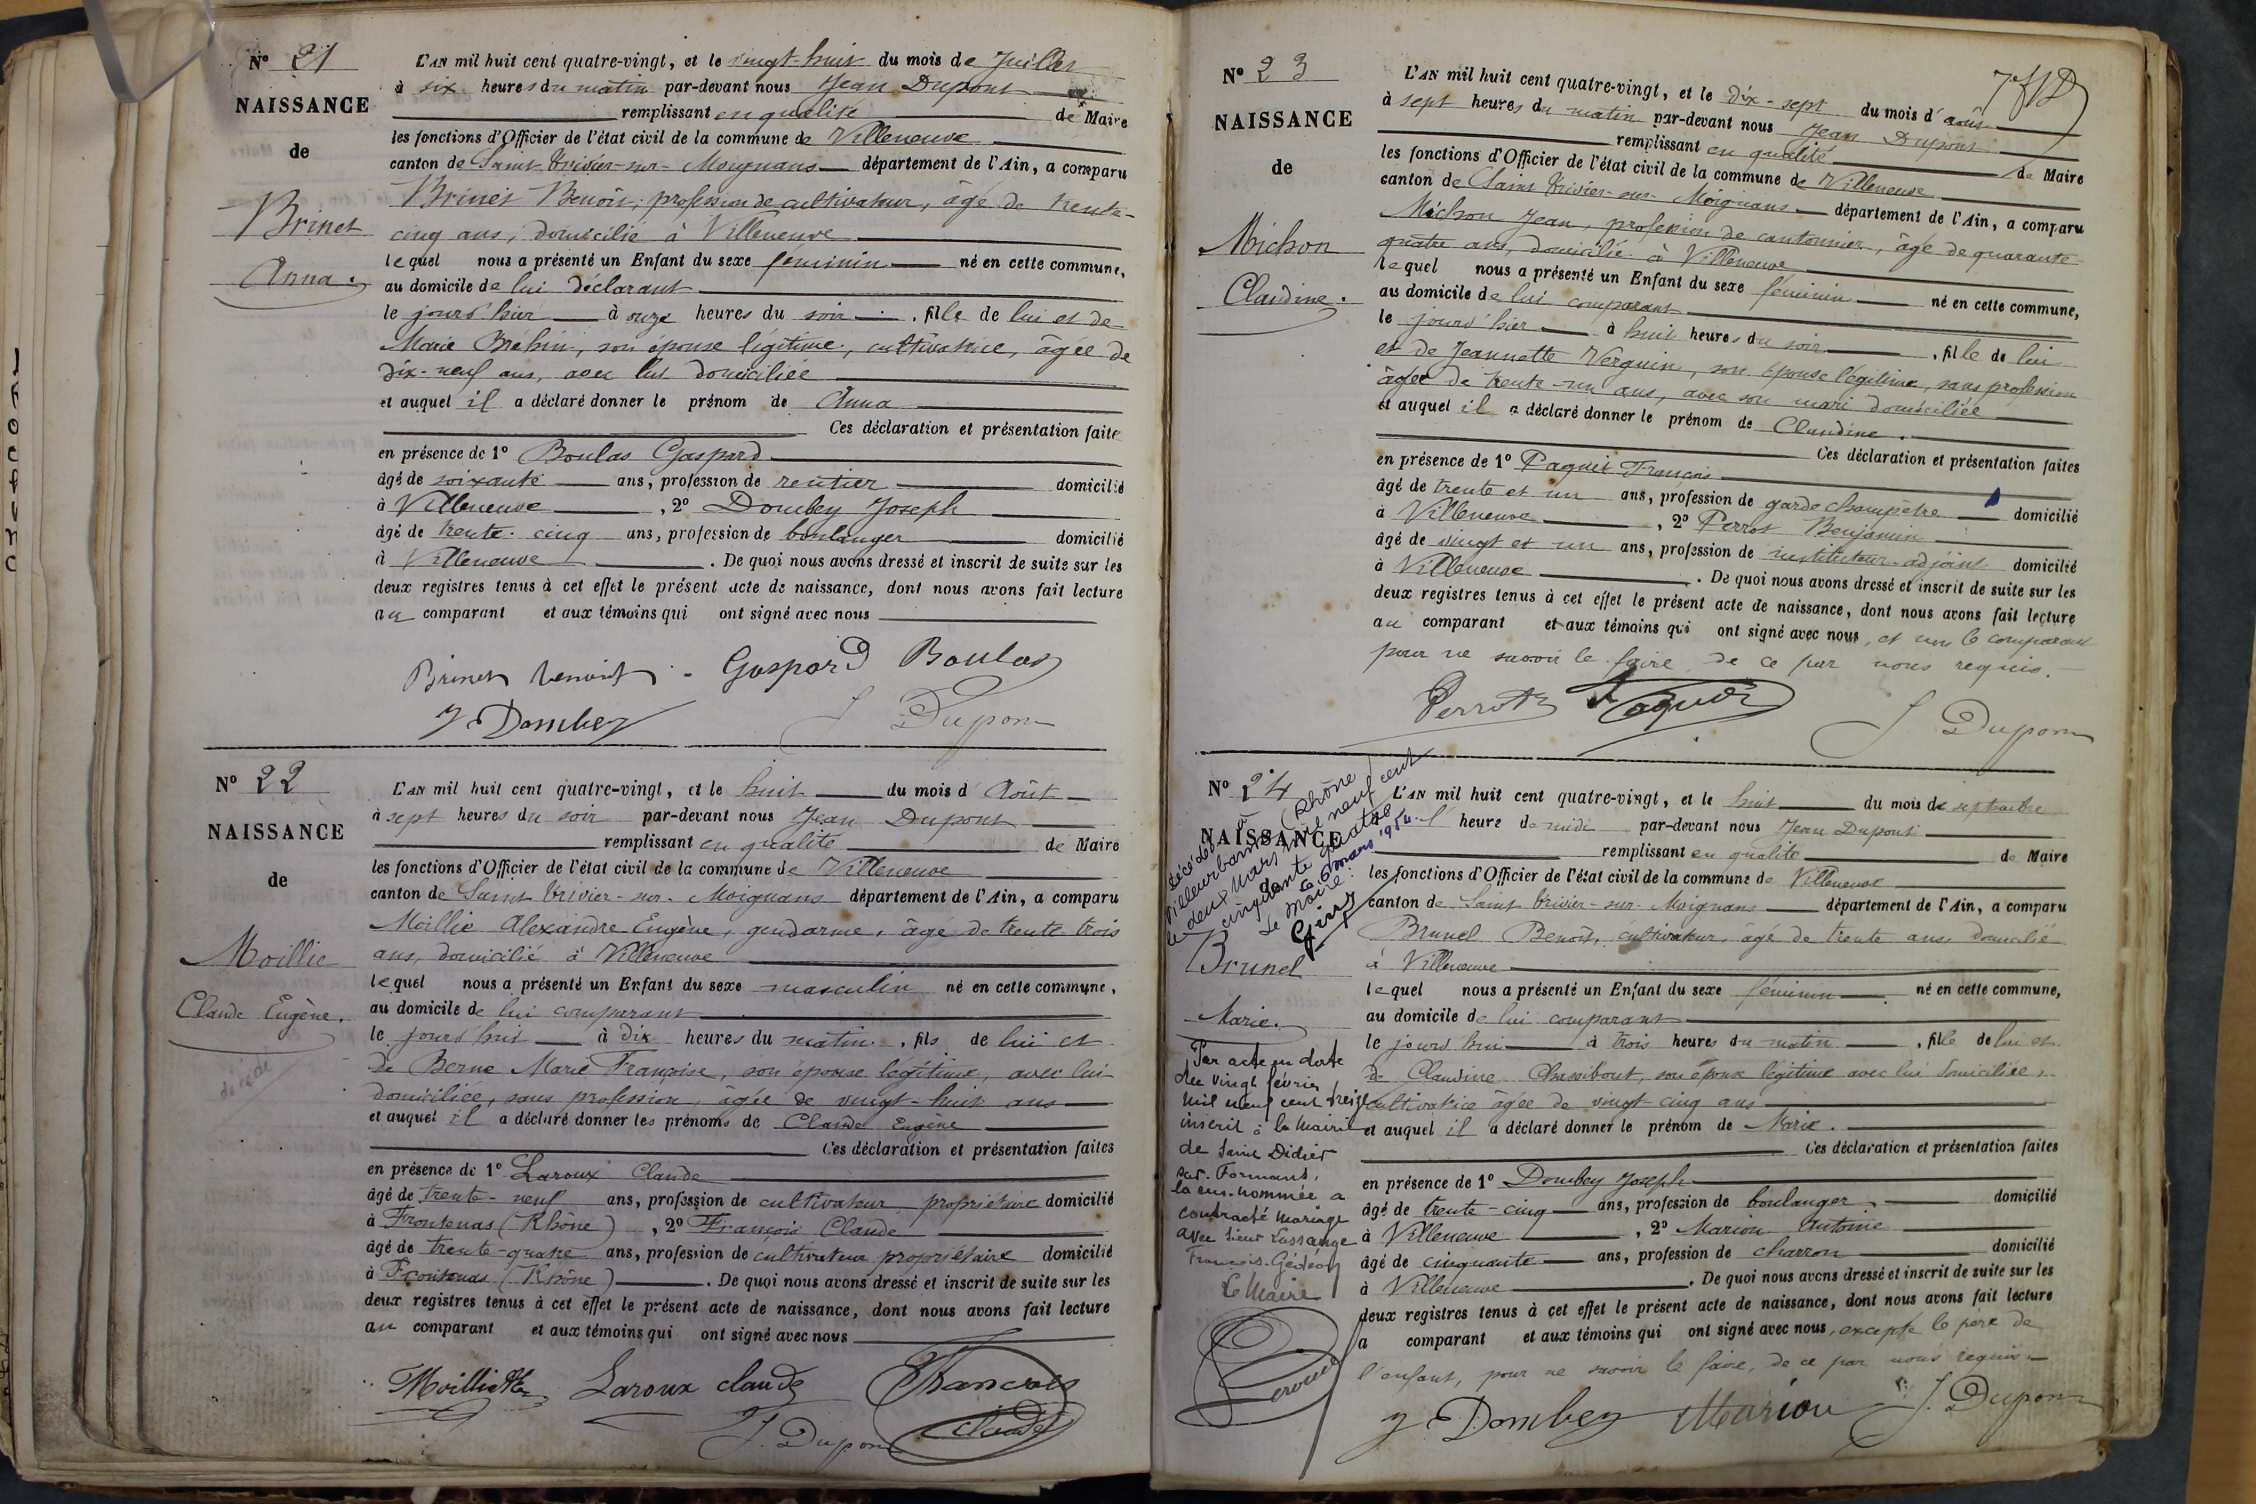 N° 21
NAISSANCE
de
Brinet
Anna.
L'AN mil huit cent quatre-vingt, et le vingt-huit du mois de Juillet
à six heures du matin par-devant nous Jean Dupont
remplissant en qualité de Maire
les fonctions d'Officier de l'état civil de la commune de Villeneuve
canton de Saint Trivier-sur-Moignans département de l'Ain, a comparu
Brinet Benoît, profession de cultivateur, âgé de trente-
cinq ans, domicilié à Villeneuve
lequel nous a présenté un Enfant du sexe féminin né en cette commune,
au domicile de lui déclarant
le jourd'hier à onze heures du soir, fille de lui et de
Marie Bréhin, son épouse légitime, cultivatrice, âgée de
dix-neuf ans, avec lui domiciliée
et auquel il a déclaré donner le prénom de Anna
Ces déclaration et présentation faite
en présence de 1° Boulas Gaspard
âgé de soixante ans, profession de rentier domicilié
à Villeneuve, 2° Dombey Joseph
âgé de trente-cinq ans, profession de boulanger domicilié
à Villeneuve. De quoi nous avons dressé et inscrit de suite sur les
deux registres tenus à cet effet le présent acte de naissance, dont nous avons fait lecture
au comparant et aux témoins qui ont signé avec nous
Brinet benoit Gaspard Boulas
J Dombey J Dupont
N° 22
NAISSANCE
de
Moillie
Claude Eugène.
décédé
L'AN mil huit cent quatre-vingt, et le huit du mois d'Août
à sept heures du soir par-devant nous Jean Dupont
remplissant en qualité de Maire
les fonctions d'Officier de l'état civil de la commune de Villeneuve
canton de Saint Trivier-sur-Moignans département de l'Ain, a comparu
Moillie Alexandre Eugène, gendarme, âgé de trente trois
ans, domicilié à Villeneuve
lequel nous a présenté un Enfant du sexe masculin né en cette commune,
au domicile de lui comparant
le jourd'hui à dix heures du matin, fils de lui et
de Berne Marie Françoise, son épouse légitime, avec lui
domiciliée, sans profession, âgée de vingt-huit ans
et auquel il a déclaré donner les prénoms de Claude Eugène
Ces déclaration et présentation faites
en présence de 1° Laroux Claude
âgé de trente-neuf ans, profession de cultivateur propriétaire domicilié
à Frontenas (Rhône), 2° François Claude
âgé de trente-quatre ans, profession de cultivateur propriétaire domicilié
à Frontenas (Rhône). De quoi nous avons dressé et inscrit de suite sur les
deux registres tenus à cet effet le présent acte de naissance, dont nous avons fait lecture
au comparant et aux témoins qui ont signé avec nous
Moillie Laroux claude François
J. Dupont claude
N° 23
NAISSANCE
de
Michon
Claudine.
L'AN mil huit cent quatre-vingt, et le dix-sept du mois d'août
à sept heures du matin par-devant nous Jean Dupont
remplissant en qualité de Maire
les fonctions d'Officier de l'état civil de la commune de Villeneuve
canton de Saint Trivier-sur-Moignans département de l'Ain, a comparu
Michon Jean, profession de cantonnier, âgé de quarante
quatre ans, domicilié à Villeneuve
lequel nous a présenté un Enfant du sexe féminin né en cette commune,
au domicile de lui comparant
le jourd'hier à huit heures du soir, fille de lui
et de Jeannette Verguin, son épouse légitime, sans profession
âgée de trente-un ans, avec son mari domiciliée
et auquel il a déclaré donner le prénom de Claudine.
Ces déclaration et présentation faites
en présence de 1° Paquet François
âgé de trente et un ans, profession de garde champêtre domicilié
à Villeneuve, 2° Perrot Benjamin
âgé de vingt et un ans, profession de instituteur-adjoint domicilié
à Villeneuve. De quoi nous avons dressé et inscrit de suite sur les
deux registres tenus à cet effet le présent acte de naissance, dont nous avons fait lecture
au comparant et aux témoins qui ont signé avec nous, et non le comparant
pour ne savoir le faire de ce par nous requis.
Perrot Paquet
J Dupont
N° 24
NAISSANCE
décédée à
Villeurbanne (Rhône)
le deux Mars mil neuf cent
cinquante quatre
Le 6 mars 1954.
Le Maire:
Brunel
Marie.
Par acte en date
du vingt février
mil neuf cent treize
inscrit à la Mairie
de Saint Didier
sur-Formans,
la sus-nommée a
contracté mariage
avec sieur Lassange
François-Gédéon
Le Maire
L'AN mil huit cent quatre-vingt, et le huit du mois de septembre
à l'heure de midi par-devant nous Jean Dupont
remplissant en qualité de Maire
les fonctions d'Officier de l'état civil de la commune de Villeneuve
canton de Saint Trivier-sur-Moignans département de l'Ain, a comparu
Brunel Benoît, cultivateur, âgé de trente ans, domicilié
à Villeneuve
lequel nous a présenté un Enfant du sexe féminin né en cette commune,
au domicile de lui comparant
le jourd'hui à trois heures du matin, fille de lui et
de Claudine Chassibout, son épouse légitime avec lui domiciliée,
cultivatrice âgée de vingt-cinq ans
et auquel il a déclaré donner le prénom de Marie.
Ces déclaration et présentation faites
en présence de 1° Dombey Joseph
âgé de trente-cinq ans, profession de boulanger domicilié
à Villeneuve, 2° Marion Antoine
âgé de cinquante ans, profession de charron domicilié
à Villeneuve. De quoi nous avons dressé et inscrit de suite sur les
deux registres tenus à cet effet le présent acte de naissance, dont nous avons fait lecture
a comparant et aux témoins qui ont signé avec nous, excepté le père de
l'enfant, pour ne savoir le faire, de ce par nous requis
J Dombey Marion J. Dupont